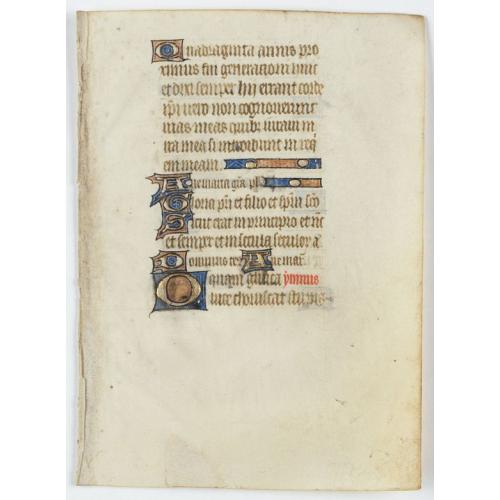 Quadraginta annis pro
ximus fui generationi huic
et dixi semper hii errant corde
ipi uero non cognouerunt
uias meas quibz iuraui in
ira mea si introibunt in req
em meam.
Aue maria gra pl
Gloria pri et filio et spiri sco
Sicut erat in principio et nc
et semper et in secula seculor a
Dominus tec Aue mar
ymnus